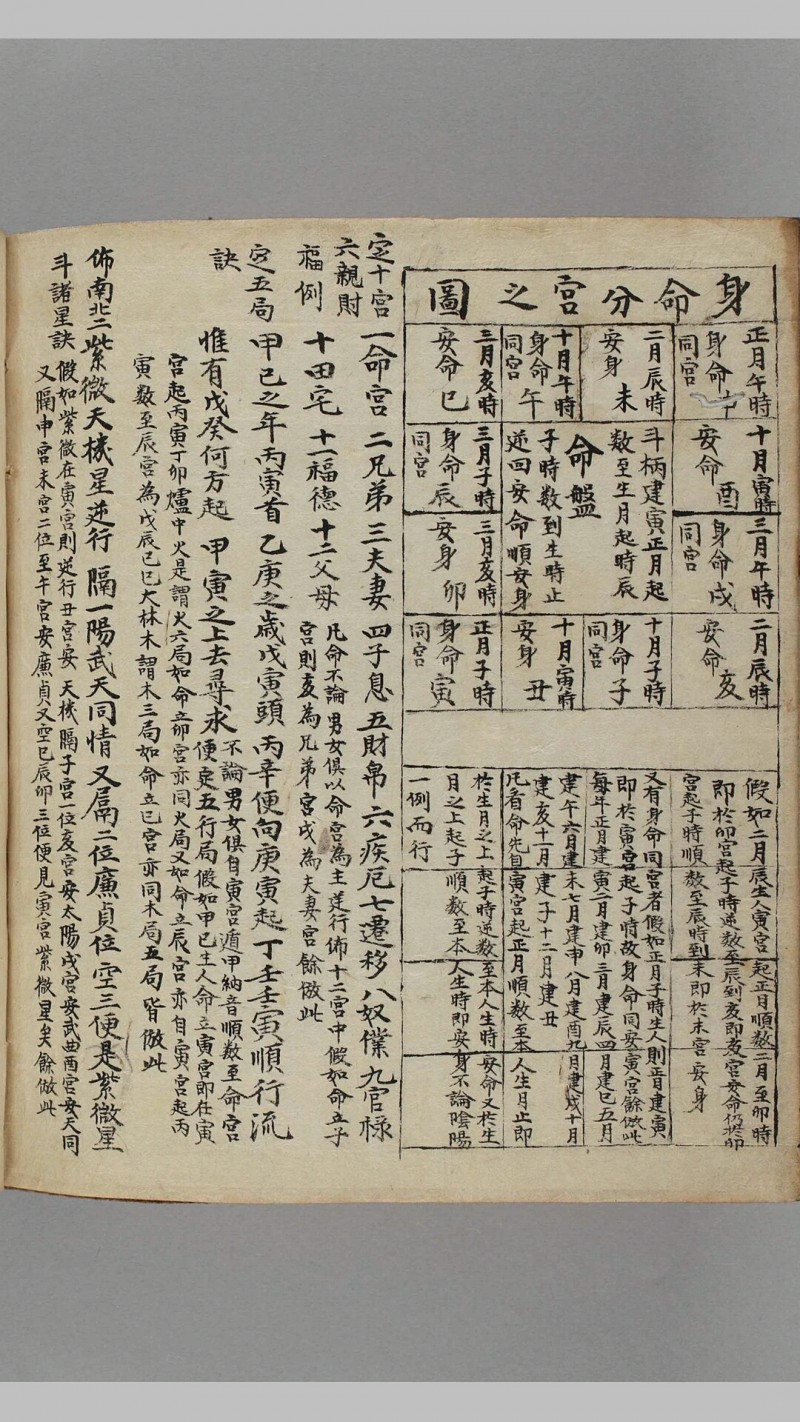 身命分宮之圖
正月午時
身命
同宮
二月辰時
安身 未
十月午時
身命 午
同宮
三月亥時
安命 巳
十月寅時
安命 酉
斗柄建寅正月起
數至生月起時辰
命盤
子時數到生時止
逆回安命順安身
三月子時
身命 辰
同宮
三月午時
身命 戌
同宮
三月亥時
安身 卯
二月辰時
安命 亥
十月子時
身命 子
同宮
十月寅時
安身 丑
正月子時
身命 寅
同宮
假如二月辰生人寅宮起正月順數二月至卯時
即於卯宮起子時逆數至辰到亥即亥宮安命仍於卯
宮起子時順數至辰時到未即於未宮安身
又有身命同宮者假如正月子時生人則正月建寅
即於寅宮起子時故身命同安寅宮餘倣此
每年正月建寅二月建卯三月建辰四月建巳五月
建午六月建未七月建申八月建酉九月建戌十月
建亥十一月建子十二月建丑
凡看命先自寅宮起正月順數至本人生月止即
於生月之上起子時逆數至本人生時安命又於生
月之上起子順數至本人生時即安身不論陰陽
一例而行
定十宮
六親財
福例
一命宮 二兄弟 三夫妻 四子息 五財帛 六疾厄 七遷移 八奴僕 九官祿
十田宅 十一福德 十二父母
凡命不論男女俱以命宮為主逆行佈十二宮中假如命立子
宮則亥為兄弟宮戌為夫妻宮餘倣此
定五局
訣
甲己之年丙寅首 乙庚之歲戊寅頭 丙辛便向庚寅起 丁壬壬寅順行流
惟有戊癸何方起 甲寅之上去尋求
不論男女俱自寅宮遁甲納音順數至命宮
便定五行局假如甲己生人命立寅宮即在寅
宮起丙寅丁卯爐中火是謂火六局如命立卯宮亦同火局又如命立辰宮亦自寅宮起丙
寅數至辰宮為戊辰己巳大林木謂木三局如命立巳宮亦同木局五局皆倣此
佈南北二
斗諸星訣
紫微天機星逆行 隔一陽武天同情 又隔二位廉貞位 空三便是紫微星
假如紫微在寅宮則逆行丑宮安天機隔子宮一位亥宮安太陽戌宮安武曲酉宮安天同
又隔申宮未宮二位至午宮安廉貞又空巳辰卯三位便見寅宮紫微星矣餘倣此